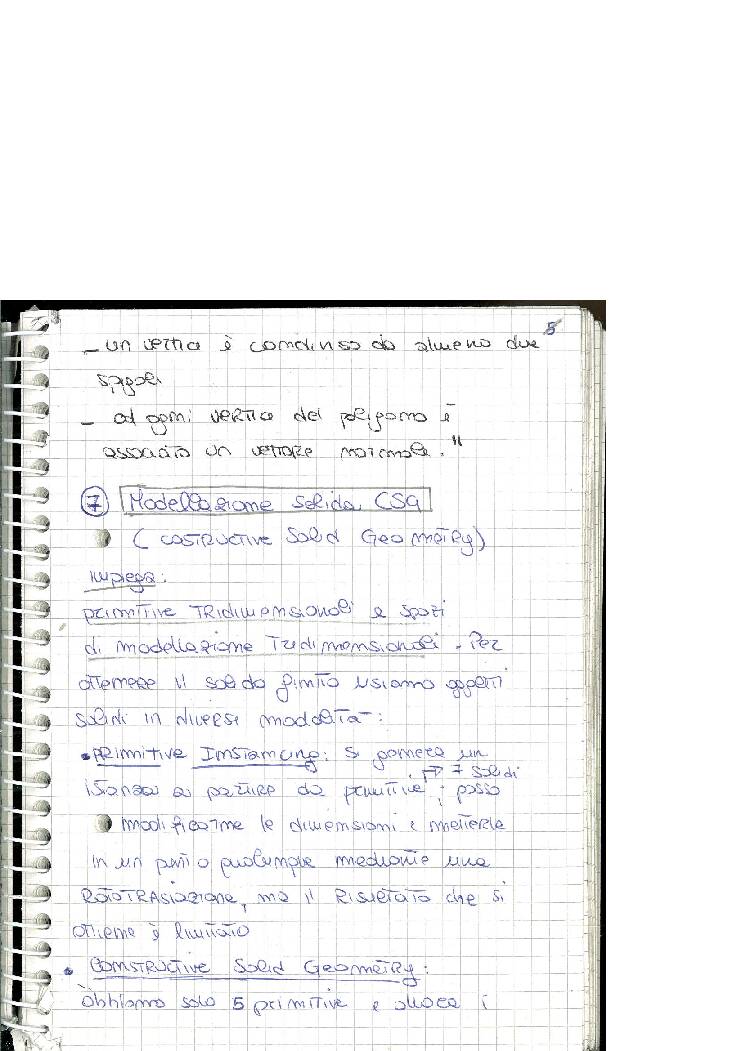 5
- un vertice è condiviso da almeno due
spigoli
- ad ogni vertice del poligono è
associato un vettore normale."
7 Modellazione solida CSG
( COSTRUCTIVE Solid GEOMETRY)
impiega:
primitive TRidimensionali e spazi
di modellazione Tridimensionali. Per
ottenere il solido finito usiamo oggetti
solidi in diverse modalità:
• PRIMITIVE INSTANCING: si genera un
→ 7 solidi
istanza a partire da primitive; posso
modificarne le dimensioni e metterle
in un punto qualunque mediante una
ROTOTRASlazione, ma il Risultato che si
ottiene è limitato
• CONSTRUCTIVE Solid GEOMETRY:
abbiamo solo 5 primitive e allora i